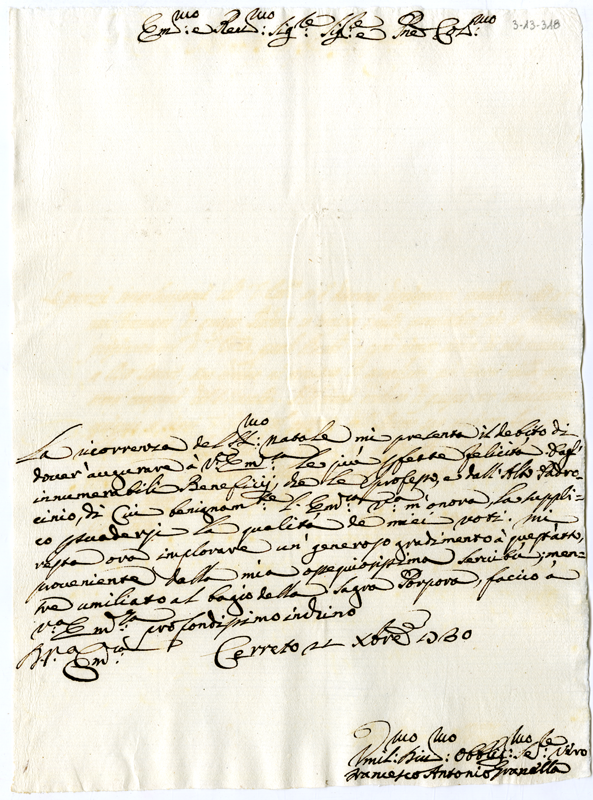 3-13-318
Em:mo e Reu:mo Sig:re Sig:re e Pne Col:mo
La ricorrenza del SS:mo Natale mi presenta il debito di
dover' augurare à V:a Em:za le più perfette felicità. Dagl'
innumerabili Beneficij, che Le professo, e dall'Alto Padro-
cinio, di Cui benignam:te l'Em:za V:ra m'onora, La suppli-
co psuadersi la qualità de miei voti. Mi
resta ora implorare un' generoso gradimento à quest'atto,
proveniente dalla mia ossequiosissima servitù; men-
tre umiliato al bagio della Sagra Porpora, faccio à
V:a Em:za profondissimo inchino
D: V:a Em:za Cerreto 21 Xbre
Umil:mo Obblig:mo Se:re Vero
Francesco Antonio